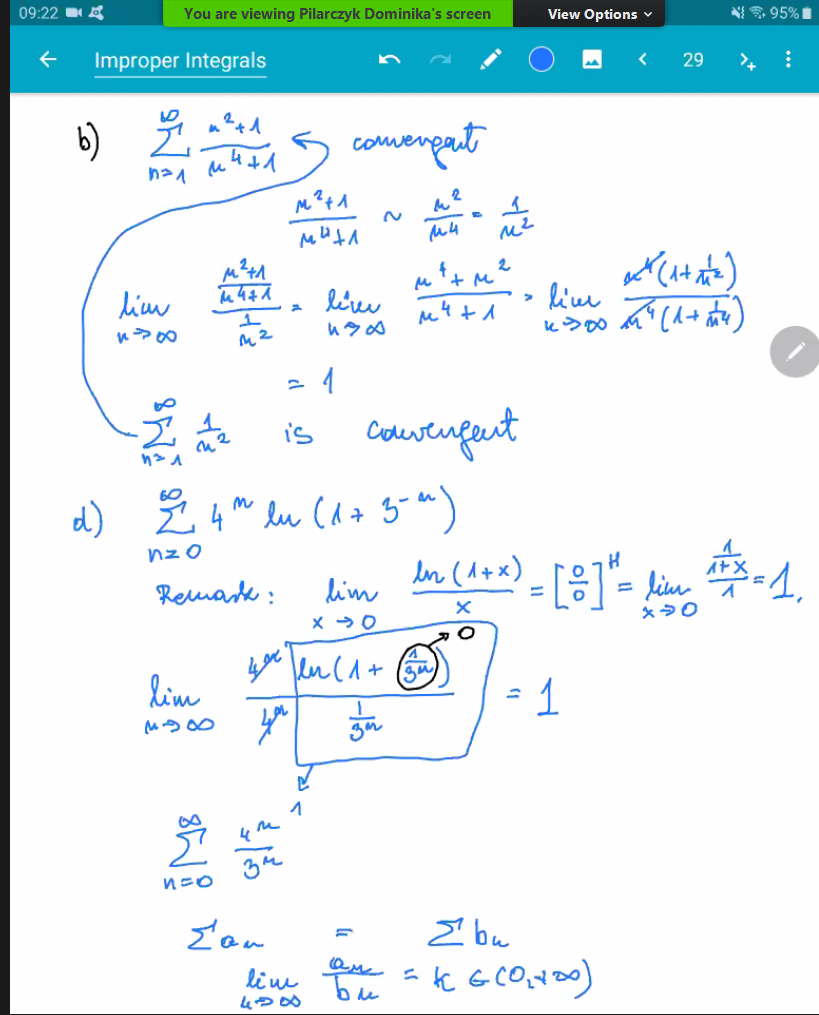 09:22 You are viewing Pilarczyk Dominika's screen View Options 95%
Improper Integrals 29
b) ∑_{n=1}^{∞} (n²+1)/(n⁴+1) convergent
(n²+1)/(n⁴+1) ~ n²/n⁴ = 1/n²
lim_{n→∞} ((n²+1)/(n⁴+1))/(1/n²) = lim_{n→∞} (n⁴+n²)/(n⁴+1) = lim_{n→∞} n⁴(1+1/n²)/n⁴(1+1/n⁴)
= 1
∑_{n=1}^{∞} 1/n² is convergent
d) ∑_{n=0}^{∞} 4ⁿ ln(1+3⁻ⁿ)
Remark: lim_{x→0} ln(1+x)/x = [0/0] ᴴ= lim_{x→0} (1/(1+x))/1 = 1.
0
lim_{n→∞} (4ⁿ ln(1+1/3ⁿ))/(4ⁿ 1/3ⁿ) = 1
1
∑_{n=0}^{∞} 4ⁿ/3ⁿ
∑aₙ = ∑bₙ
lim_{n→∞} aₙ/bₙ = K ∈ (0,+∞)